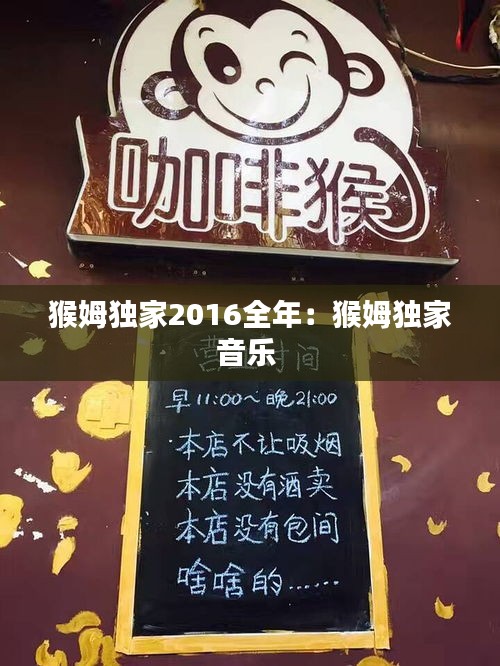 咖啡猴
猴姆独家2016全年：猴姆独家
音乐
营业时间
早11:00～晚21:00
·本店不让吸烟
·本店没有酒卖
·本店没有包间
啥啥的……